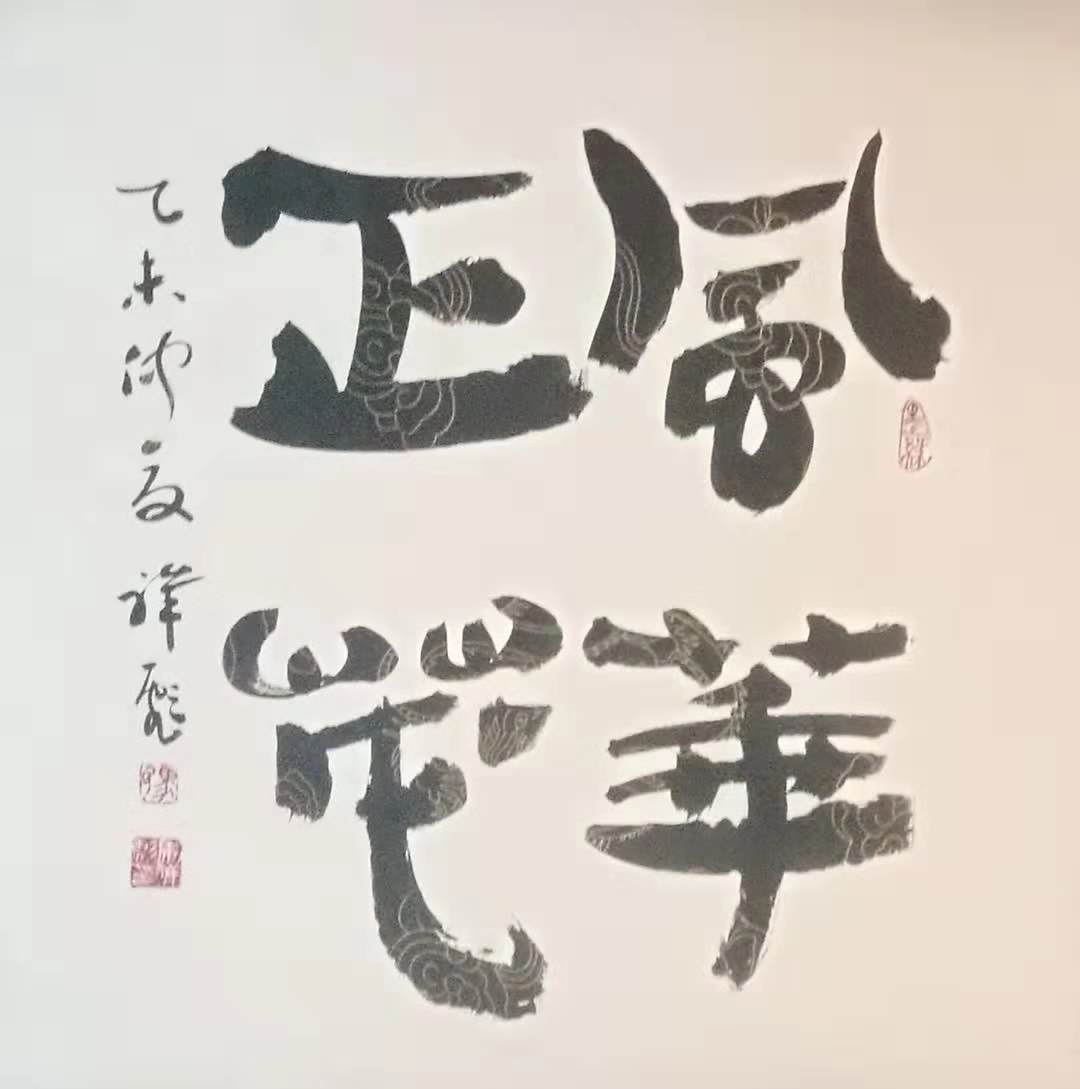 風華
正茂
乙未仲夏祥